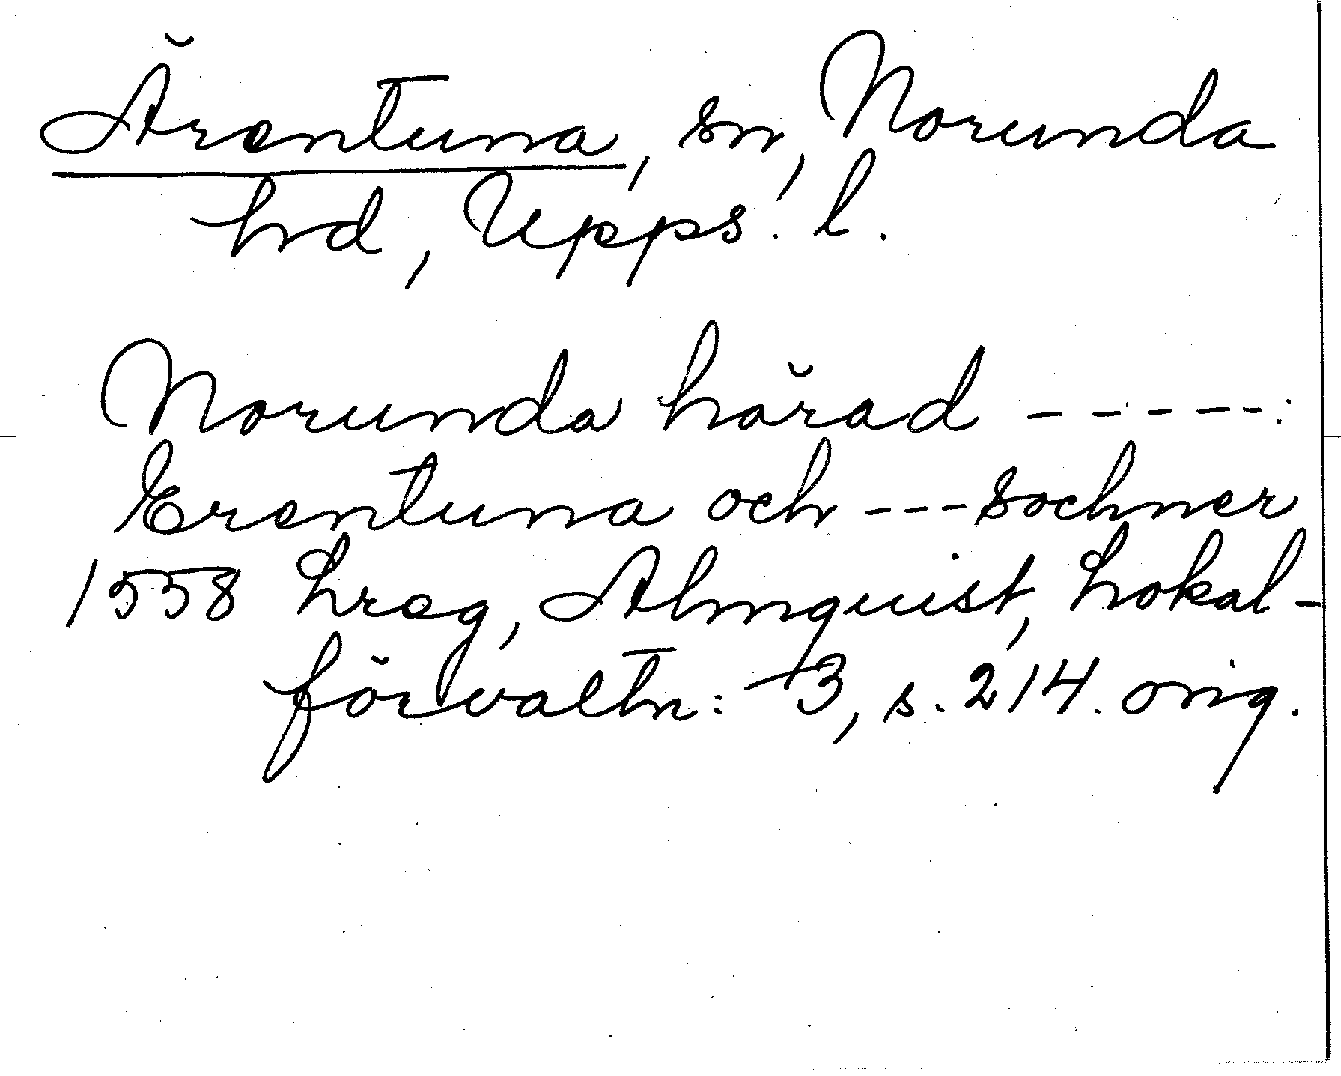 Ärentuna, sn, Norunda
hd, Upps. l.
Norunda härad - - - - - :
Erentuna och - - - sochner
1558 hreg, Almquist, Lokal-
förvaltn: 3, s. 214. orig.